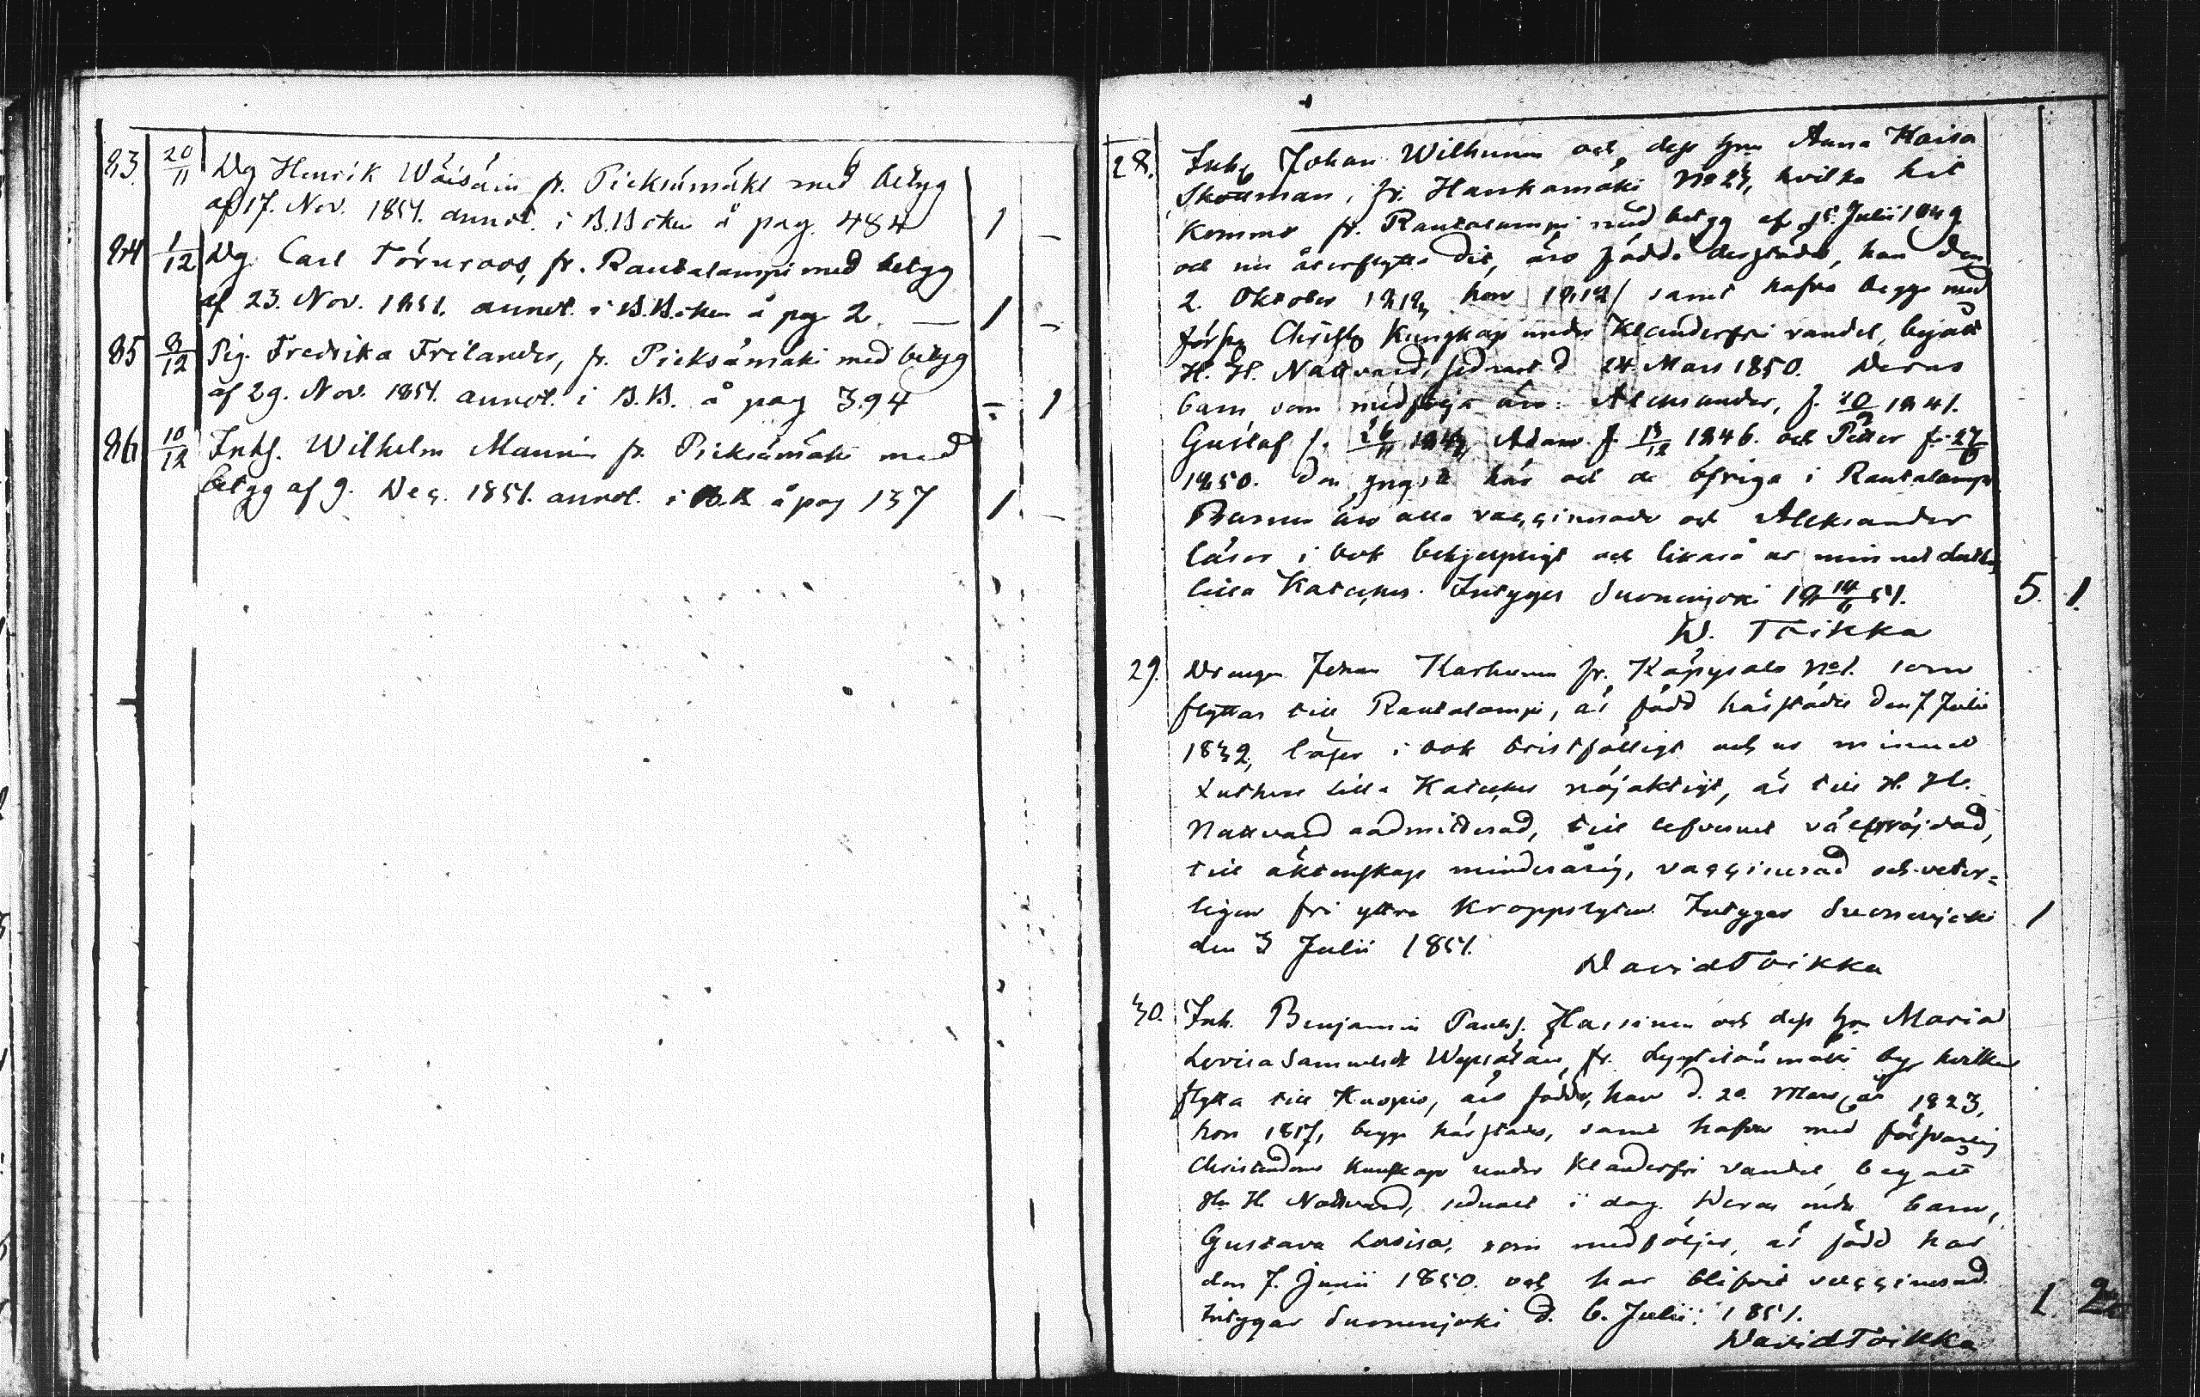 83 20/11 Dg Henrik Wäisäin fr. Pieksämäki med betyg
af 17. Nov. 1851. annot. i B.Boken å pag. 484 1 –
84 1/12 Dg. Carl Törnroos, fr. Rautalampi med betyg
af 23. Nov. 1851. annot. i B.B.oken å pag 2. — 1 –
85 8/12 Pig. Fredrika Frilander, fr. Pieksämäki med betyg
af 29. Nov. 1851. annot. i B.B. å pag 394 – 1
86 10/12 Inhs. Wilhelm Mannin fr. Pieksämäki med
betyg af 9. Dec. 1851. annot. i B.B å pag 137 1. –
28. Inhs Johan Wilhunen och dess hru Anna Kaisa
fr. Hankamäki No 2, hvilka hit
kommo fr. Rautalampi med betyg af Julii 1849
och nu återflytta dit, äro födde derstädes, han den
2. Oktober hon samt hafva begge med
Kunskap under klanderfri vandel, begått
H. H. Nattvard, sednast d 24 Mars 1850. Deras
barn som medfölja äro: Aleksander, f. 1841.
Gustaf f. Adam f. 13/12 1846. och Petter f. 27/6
1850. den yngste här och de öfriga i Rautalampi
Barnen äro alla vaccinerade och Aleksander
läser i bok behjelpligt och likaså ur minnet
lilla Kateches. Intygas Suonenjoki 18 14/6 51. 5. 1.
D. Toikka
29. Drängen Johan Karhunen fr. Käpysalo No 1. som
flyttar till Rautalampi, är född härstädes den 7 Julii
1832, läser i bok bristfälligt och ur minnet
Luthers lilla Kateches nöjaktigt, är till H. H.
Nattvard admitterad, till lefvernet välfräjdad,
till äktenskap minderårig, vaccinerad och veter=
ligen fri yttre kroppslyten. Intygar Suonenjoki 1
den 3 Julii 1851.
David Toikka
30. Inh. Benjamin Paulss. Hassinen och dess hru Maria
Lovisa Samuelsdr fr. by hvilka
flytta till Kuopio, äro födde, han d. 20 Mars år 1823,
hon 1817, begge härstädes, samt hafva med försvarlig
Christendoms kunskap under klanderfri vandel begått
H. H. Nattvard, sednast i dag. Deras enda barn,
Gustava Lovisa, som medföljer, är född här
den 7. Junii 1850. och har blifvit vaccinerad.
Intygar Suonenjoki d. 6. Julii. 1851. 1 2
David Toikka